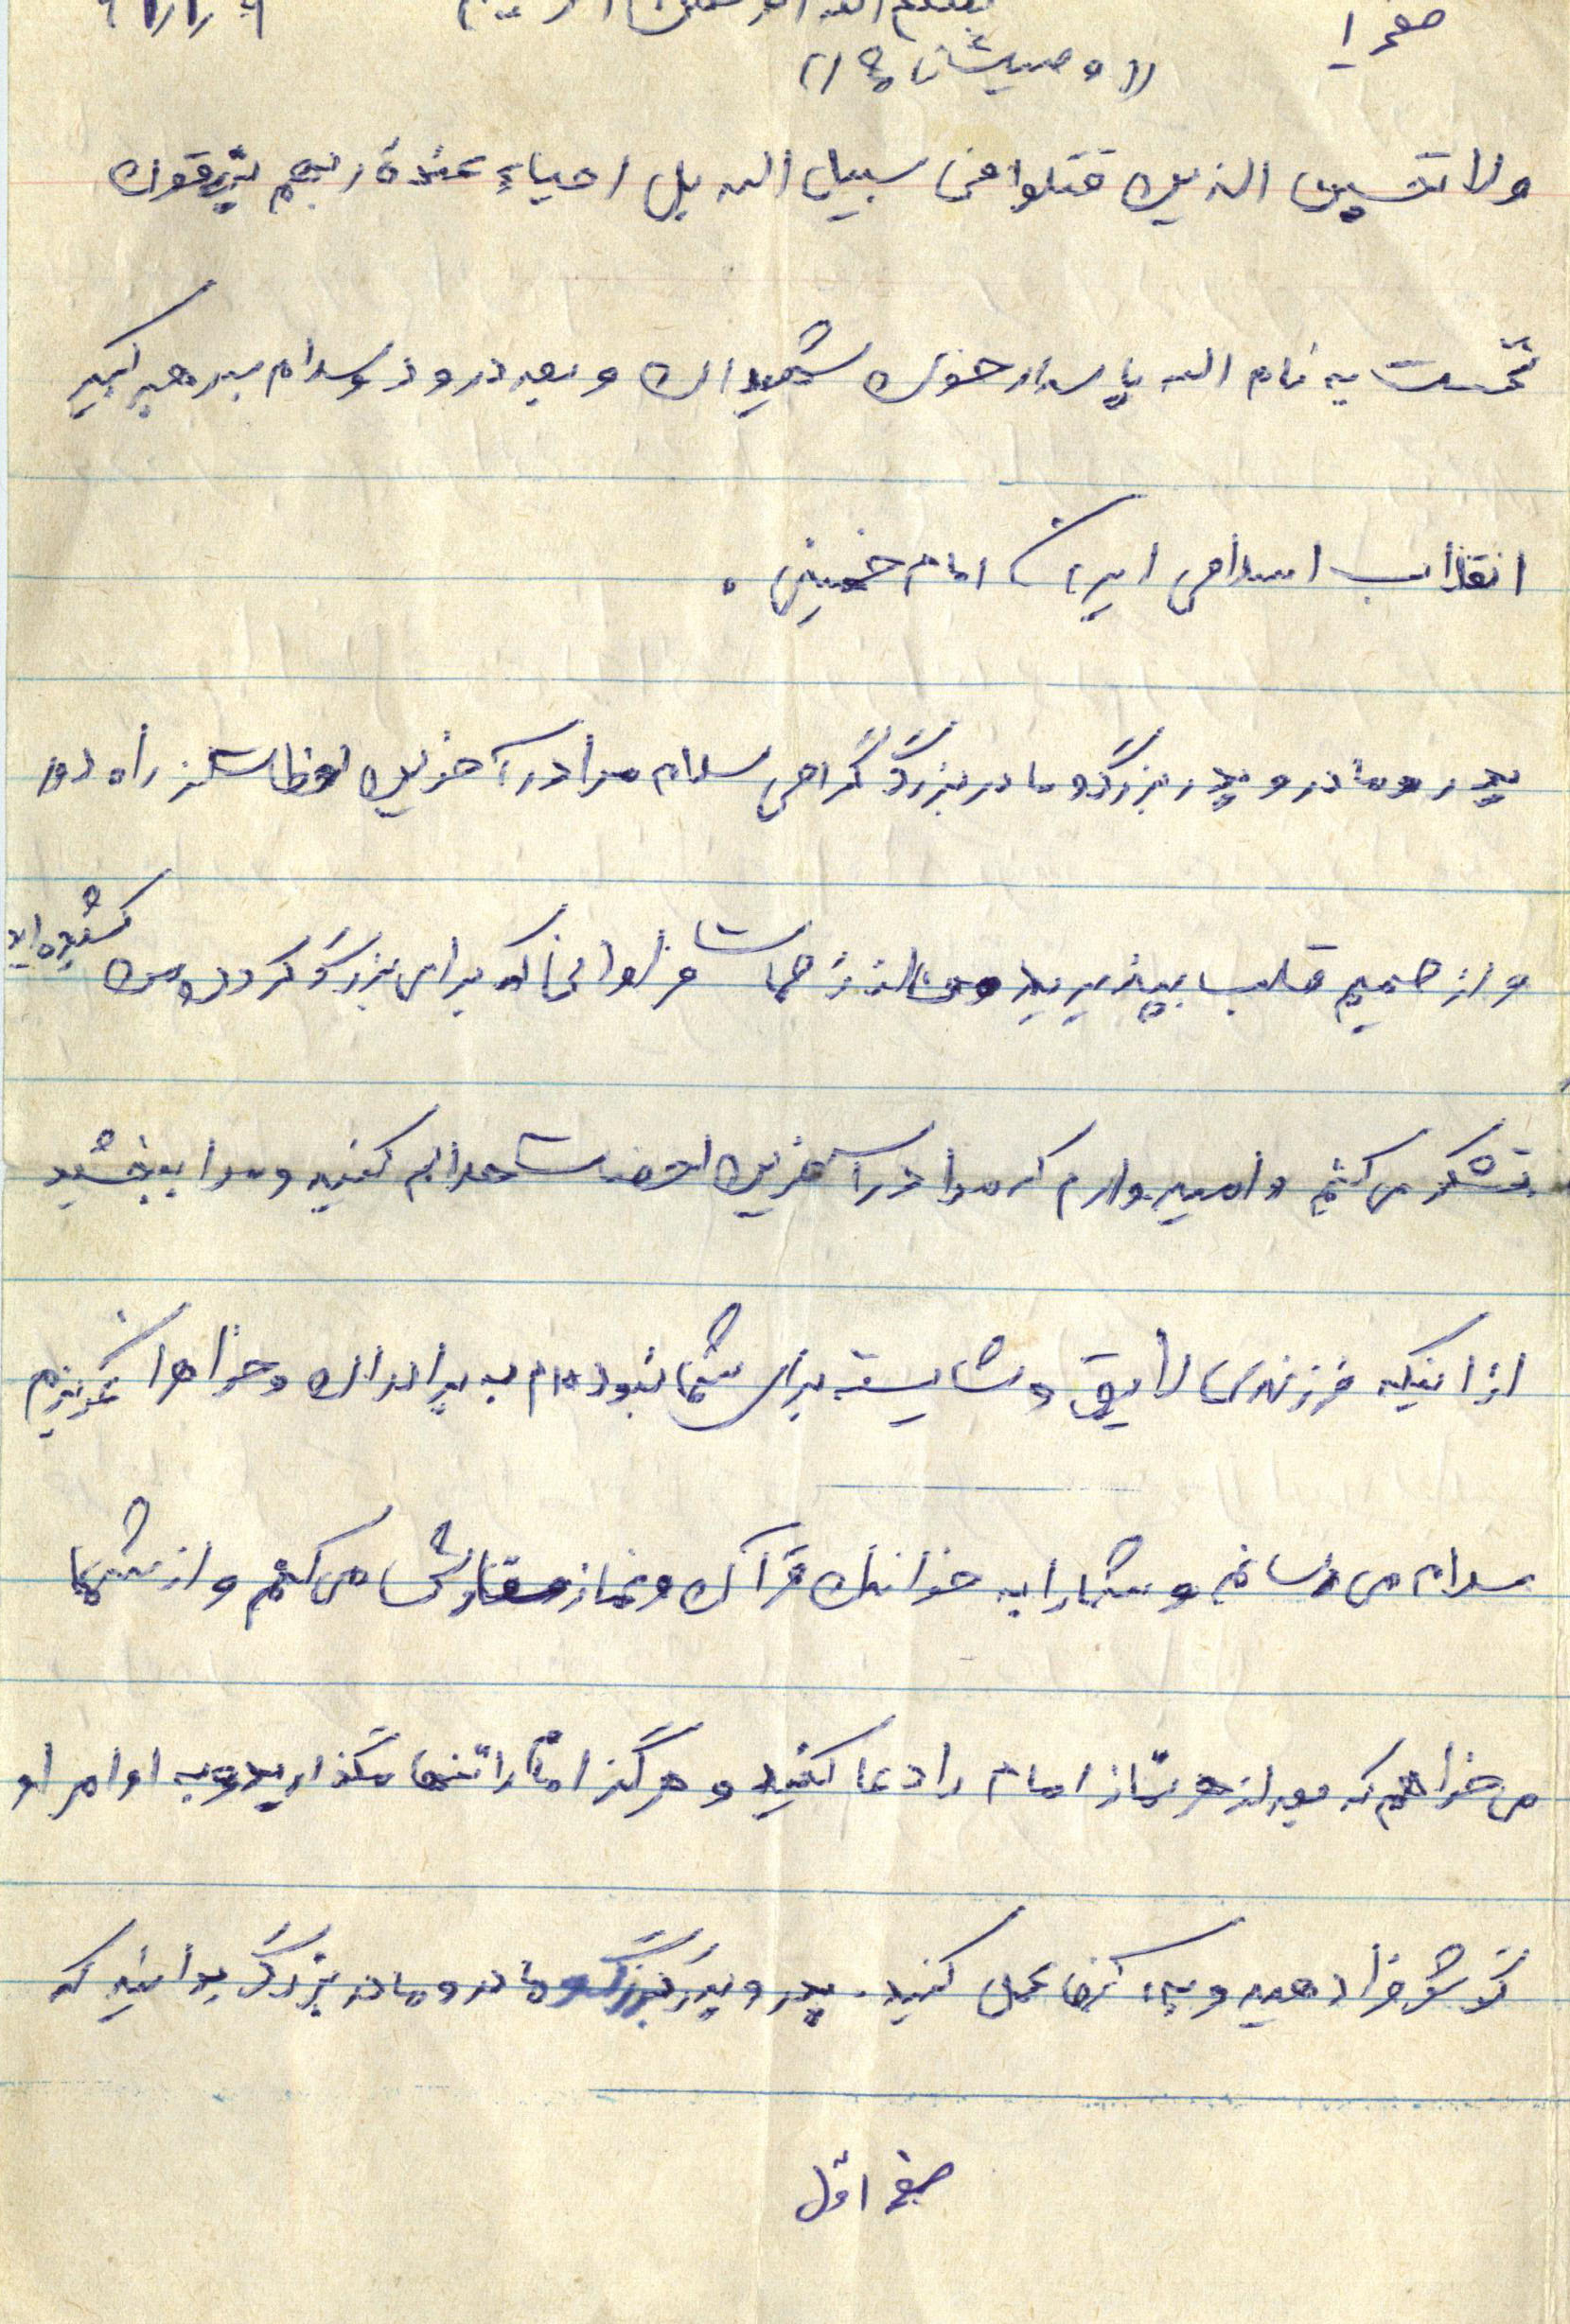 صفحه ۱
بسم الله الرحمن الرحیم
((وصیتنامه))
ولا تحسبن الذین قتلوا فی سبیل الله بل احیاءٍ عندهُ ربهم یُرزقون
نخست به نام الله پاسدار خون شهیدان و بعد درود و سلام به رهبر کبیر
انقلاب اسلامی ایران امام خمینی .
پدر و مادر و پدر بزرگ و مادر بزرگ گرامی سلام مرا در آخرین لحظات از راه دور
و از صمیم قلب بپذیرید و من از زحمات فراوانی که برای بزرگ کردن من کشیده‌اید
تشکر می‌کنم و امیدوارم که مرا در آخرین لحضات حلالم کنید و مرا ببخشید
از اینکه فرزندی لایق و شایسته برای شما نبوده‌ام به برادران و خواهران عزیزم
سلام می رسانم و شما را به خواندن قرآن و نماز سفارش می کنم و از شما
می خواهم که بعد از هر نماز امام را دعا کنید و هرگز امام را تنها نگذارید و به اوامر او
گوش فرا دهید و به آنها عمل کنید. پدر و پدر بزرگ و مادر و مادر بزرگ بدانید که
صفحه اوّل